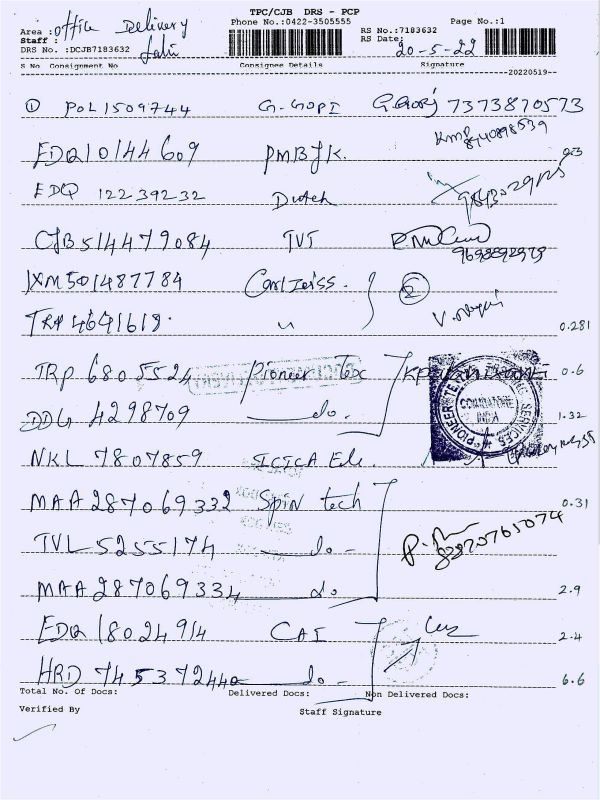 TPC/CJB DRS - PCP
Phone No.:0422-3505555 Page No.:1
Area : Office Delivery RS No.:7183632
Staff : RS Date: 20-5-22
DRS No. :DCJB7183632
S No Consignment No Consignee Details Signature
20220519
① POL1509744 G.GOPI 7373870573
EDQ10144609 PMBJK. 8940898539 0.3
EDQ 12239232 Dutch
CJB514479084 TVT 9698892979
JXM501487784 Carl Zeiss. ②
TRP 4641618. 〃 0.281
TRP 6805524 Pioneer Tex 0.6
DDG 4298709 do. 1.32
PIONEER SERVICES COIMBATORE INDIA
NKL 7807859 ICICA Ede.
MAA287069332 Spin tech 0.31
TVL5255174 do -
MAA287069334 do 2.9
EDQ 18024914 CAI 2.4
HRD 745372440 do - 6.6
Total No. Of Docs: Delivered Docs: Non Delivered Docs:
Verified By Staff Signature